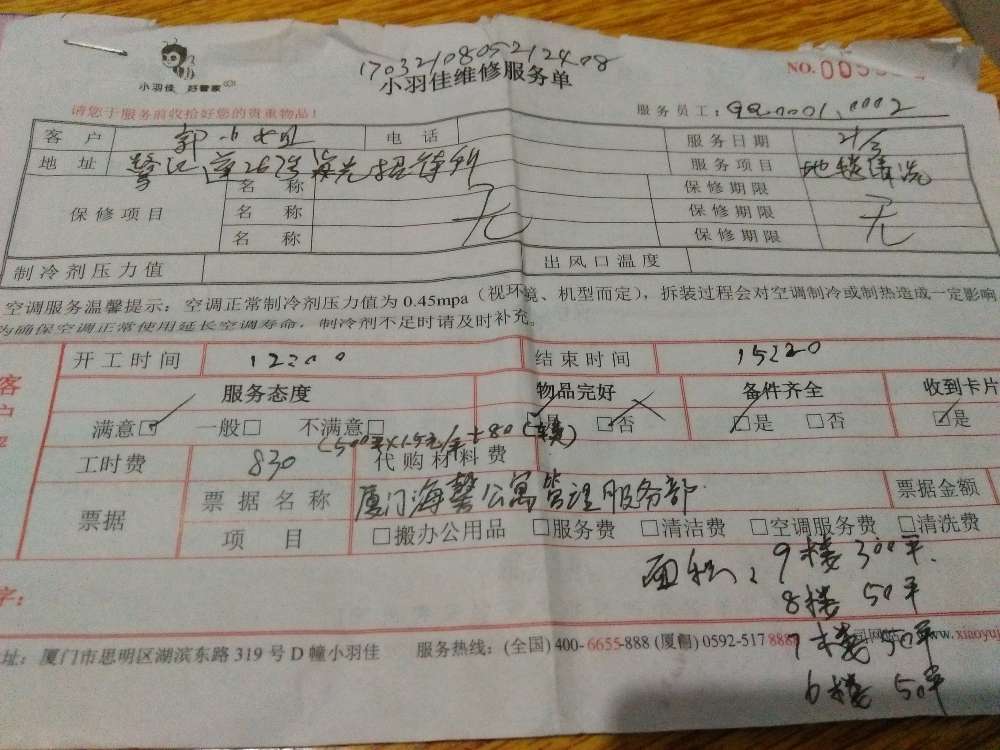 1703210805212408
小羽佳 好管家
小羽佳维修服务单
NO.
请您于服务前收拾好您的贵重物品！
服务员工：
客户 郭小姐 电话 服务日期 21/3
地址 鹭江道26号海光招待所 服务项目 地毯清洗
保修项目 名称 无 保修期限 无
名称 保修期限
名称 保修期限
制冷剂压力值 出风口温度
空调服务温馨提示：空调正常制冷剂压力值为0.45mpa（视环境、机型而定），拆装过程会对空调制冷或制热造成一定影响
为确保空调正常使用延长空调寿命，制冷剂不足时请及时补充。
开工时间 12:00 结束时间 15:20
客户
服务态度 物品完好 备件齐全 收到卡片
满意☑ 一般□ 不满意□ ☑是 □否 ☑是 □否 ☑是
(500平×1.5元/平+80
工时费 830 代购材料费
票据 票据名称 厦门海馨公寓管理服务部 票据金额
项目 □搬办公用品 □服务费 □清洁费 □空调服务费 □清洗费
面积：9楼 300平
字：
8楼 50平
7楼 50平
址：厦门市思明区湖滨东路319号D幢小羽佳 服务热线：(全国) 400-6655-888 (厦门) 0592-517 888 www.xiaoyuj
6楼 50平